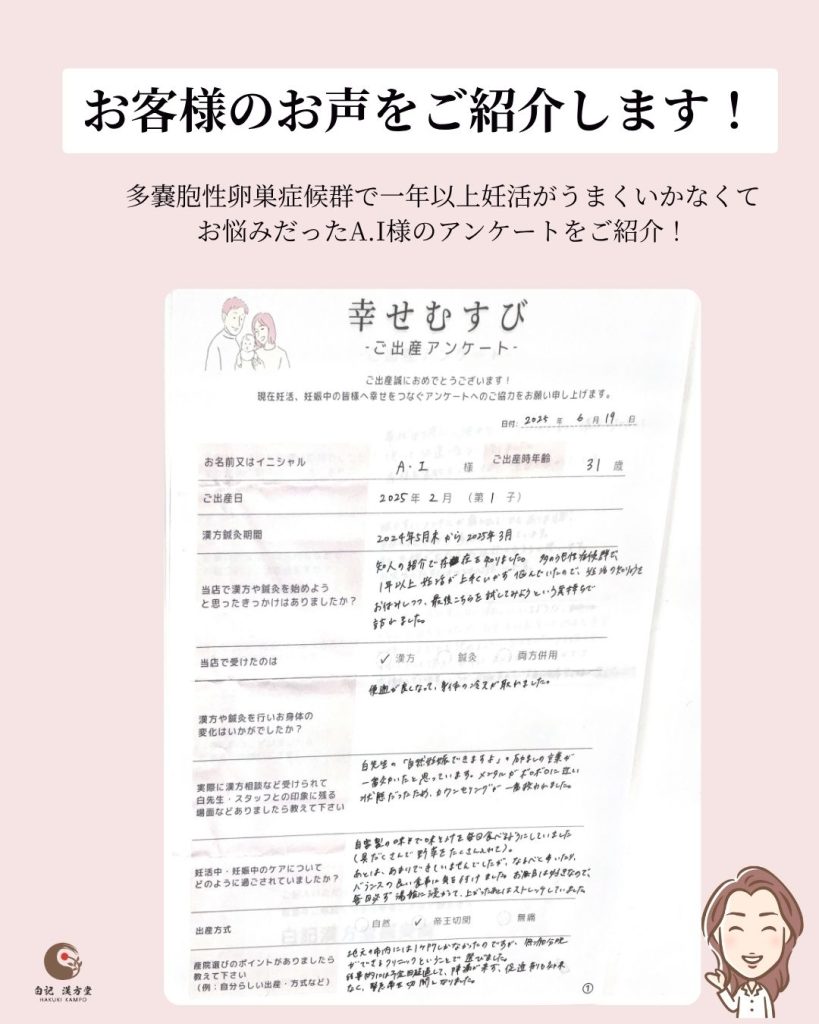 お客様のお声をご紹介します！
多嚢胞性卵巣症候群で一年以上妊活がうまくいかなくて
お悩みだったA.I様のアンケートをご紹介！
幸せむすび
-ご出産アンケート-
ご出産誠におめでとうございます！
現在妊活、妊娠中の皆様へ幸せをつなぐアンケートへのご協力をお願い申し上げます。
日付: 2025 年 6 月 19 日
お名前又はイニシャル A・I 様 ご出産時年齢 31 歳
ご出産日 2025 年 2 月 (第 1 子)
漢方鍼灸期間 2024年5月末 から 2025年3月
当店で漢方や鍼灸を始めよう
と思ったきっかけはありましたか？
知人の紹介で存在を知りました。多のう胞性症候群で、
1年以上 妊活が上手くいかず 悩んでいたので、妊活
お休みしつつ、最後こちらを試してみようという気持ちで
訪れました。
当店で受けたのは ✓ 漢方 鍼灸 両方併用
漢方や鍼灸を行いお身体の
変化はいかがでしたか？
便通が良くなって、身体の冷えが取れました。
実際に漢方相談など受けられて
白先生・スタッフとの印象に残る
場面などありましたら教えて下さい
白先生の「自然妊娠できますよ」の励ましの言葉が
一番効いたと思っています。メンタルがボロボロに近い
状態だったため、カウンセリングが一番救われました。
妊活中・妊娠中のケアについて
どのように過ごされていましたか？
自家製の味噌で味そ汁を毎日食べるようにしていました
(具だくさんで 野菜をたくさん入れて)。
あとは、あまりできていませんでしたが、なるべく歩いたり、
バランスの良い食事に気を付けました。お風呂は好きなので、
毎日必ず 湯船に浸かって、上がった後はストレッチしていました。
出産方式 自然 ✓ 帝王切開 無痛
産院選びのポイントがありましたら
教えて下さい
(例：自分らしい出産・方式など)
地元の市内には1ヶ所しかなかったのですが、
ができるクリニックということで 選びました。
結果的には予定日超過して、陣痛が来ず、促進剤も
なく、緊急帝王切開しなりました。
①
白记 漢方堂
HAKUKI KAMPO